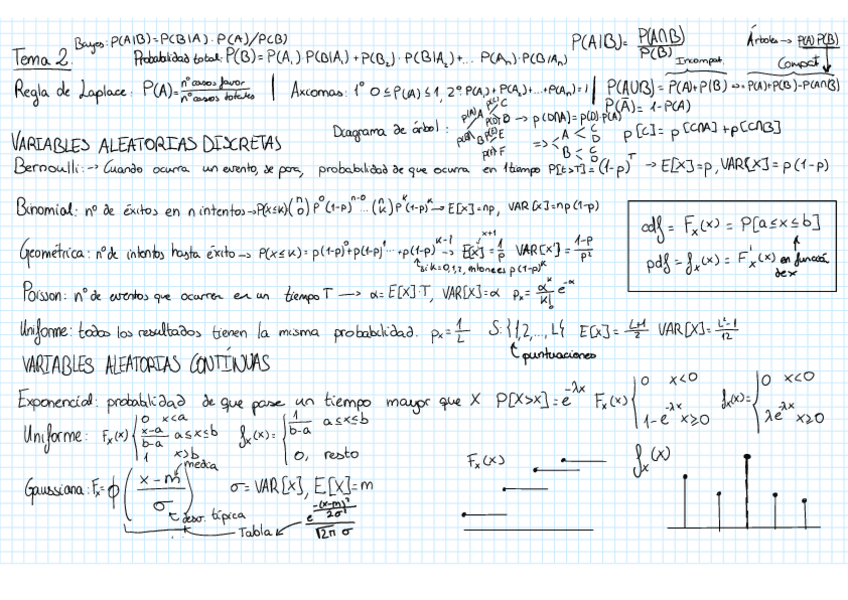 Bayes: P(A|B)=P(B|A)·P(A)/P(B)
P(A|B)= P(A∩B)/P(B)
Árboles → P(A) P(B)
Tema 2.
Probabilidad total: P(B)=P(A₁)·P(B|A₁)+P(B₂)·P(B|A₂)+... P(Aₙ)·P(B|Aₙ)
Incompat. Compat
Regla de Laplace: P(A)= nº casos favor/nº casos totales | Axiomas: 1º 0≤P(A)≤1, 2º P(A₁)+P(A₂)+...+P(Aₙ)=1 | P(A∪B)=P(A)+P(B) ↔ P(A)+P(B)-P(A∩B)
P(Ā)=1-P(A)
Diagrama de árbol:
→ p(D∩A)=p(D)·p(A)
=> A < C D
B < C D
p[C]=p[C∩A]+p[C∩B]
VARIABLES ALEATORIAS DISCRETAS
Bernoulli: → Cuando ocurra un evento, se para, probabilidad de que ocurra en 1 tiempo P[t>T]=(1-p)^T → E[X]=p, VAR[X]=p(1-p)
Binomial: nº de éxitos en n intentos → P(x≤k)(n 0) p⁰(1-p)ⁿ⁻⁰ ... (n k) p^k(1-p)^k → E[x]=np, VAR[x]=np(1-p)
Geométrica: nº de intentos hasta éxito → P(x≤k)=p(1-p)⁰+p(1-p)¹...+p(1-p)^(k-1) → E[x]=1/p VAR[x]=(1-p)/p²
x+1
si k=0,1,2, entonces p(1-p)^k
cdf = Fx(x) = P[a≤x≤b]
pdf = fx(x) = F'x(x) en función de x
Poisson: nº de eventos que ocurren en un tiempo T → α=E[X]·T, VAR[X]=α pₓ= α^k/k! e^-α
Uniforme: todos los resultados tienen la misma probabilidad. pₓ=1/L S:{1,2,...,L} E[X]=(L+1)/2 VAR[X]=(L²-1)/12
puntuaciones
VARIABLES ALEATORIAS CONTÍNUAS
Exponencial: probabilidad de que pase un tiempo mayor que X P[X>x]=e^-λx Fx(x){0 x<0 1-e^-λx x≥0 fx(x)={0 x<0 λe^-λx x≥0
Uniforme: Fx(x){0 x<a (x-a)/(b-a) a≤x≤b 1 x>b fx(x)={1/(b-a) a≤x≤b 0, resto
media
Gaussiana: Fx=ϕ((x-m)/σ) σ=VAR[X], E[X]=m
desv. típica
Tabla e^(-(x-m)²/2σ²)/√2π σ
Fx(x)
fx(x)